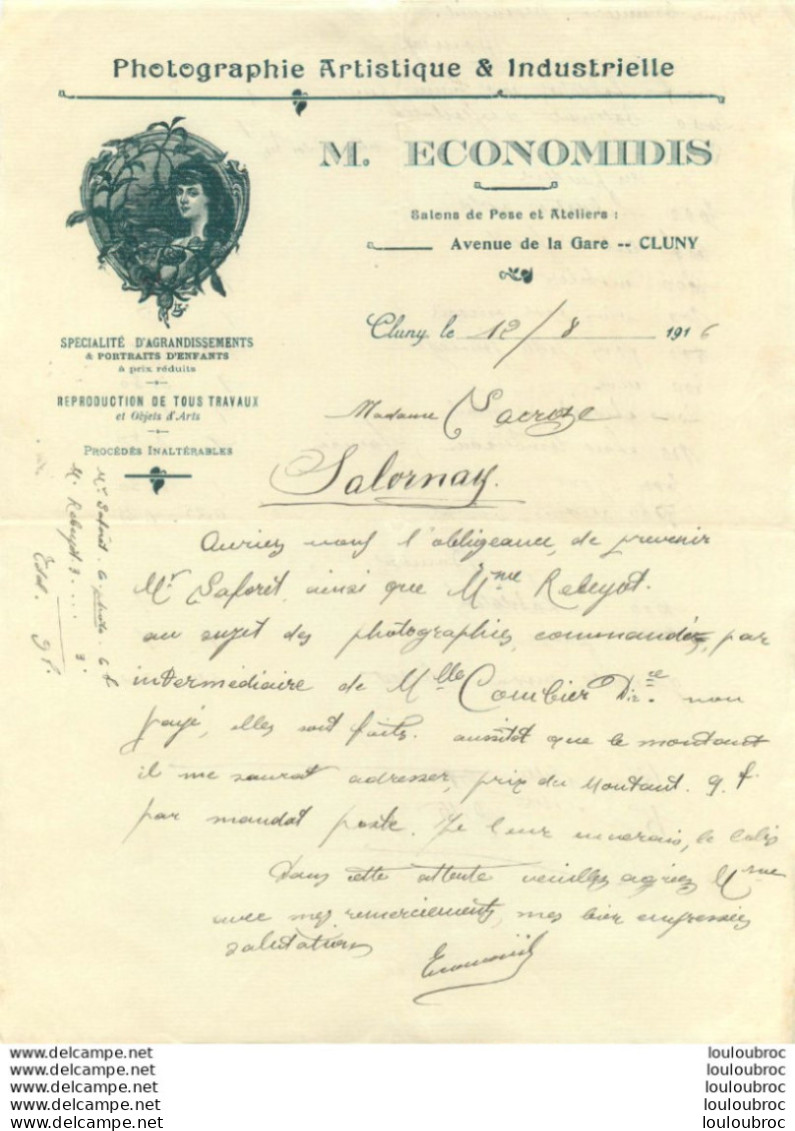 Photographie Artistique & Industrielle
M. ECONOMIDIS
Salons de Pose et Ateliers :
Avenue de la Gare -- CLUNY
SPÉCIALITÉ D'AGRANDISSEMENTS
& PORTRAITS D'ENFANTS
à prix réduits
REPRODUCTION DE TOUS TRAVAUX
et Objets d'Arts
PROCÉDÉS INALTÉRABLES
Cluny, le 12/8 1916
Madame Lacroze
Salornay.
Mr Laforêt 6 photo 6 f
M. Rebeyot 3 .... 3
Total. 9 f.
Auriez vous l'obligeance, de prevenir
Mr Laforêt, ainsi que Mme Rebeyot.
au sujet des photographies, commandés, par
intermédiaire de Mlle Combier Dirce non
payé, elles sont faits. aussitot que le montant
il me saurat adresser, prix du Montant. 9. f.
par mandat poste. Je leur enverais, le colis
Dans cette attente veuillez agréez Mme
avec mes remerciements, mes bien empressées
salutations
Economidis
www.delcampe.net
www.delcampe.net
www.delcampe.net
www.delcampe.net
www.delcampe.net
louloubroc
louloubroc
louloubroc
louloubroc
louloubroc